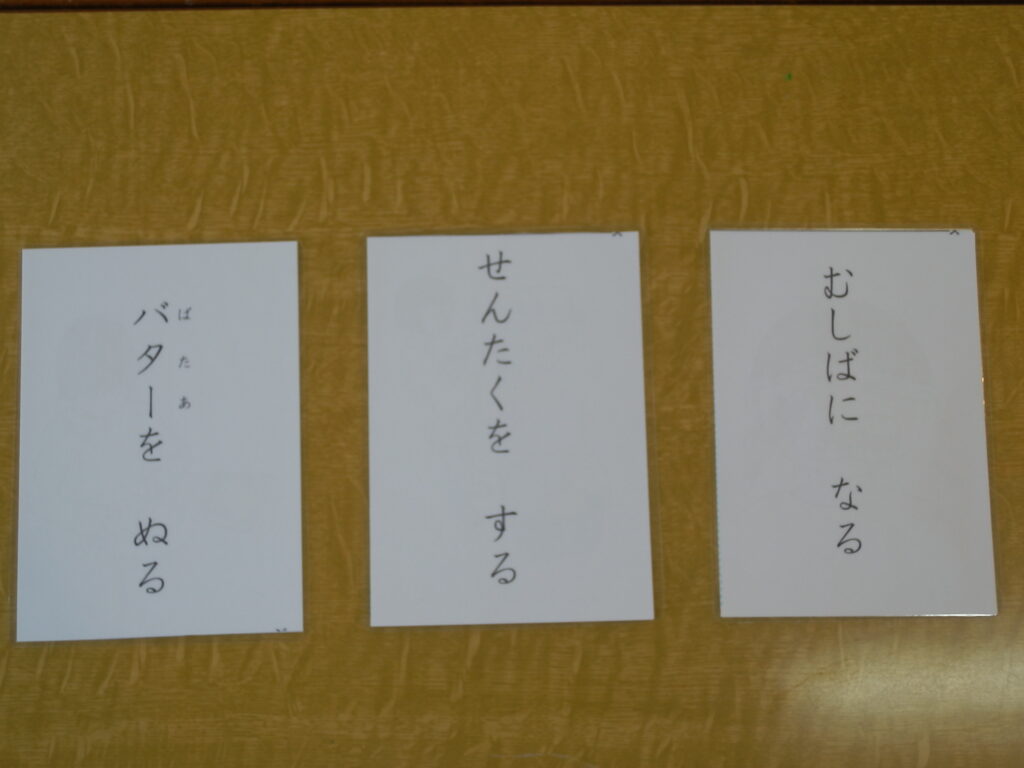 むしばに なる
せんたくを する
バターを ぬる
ばたあ